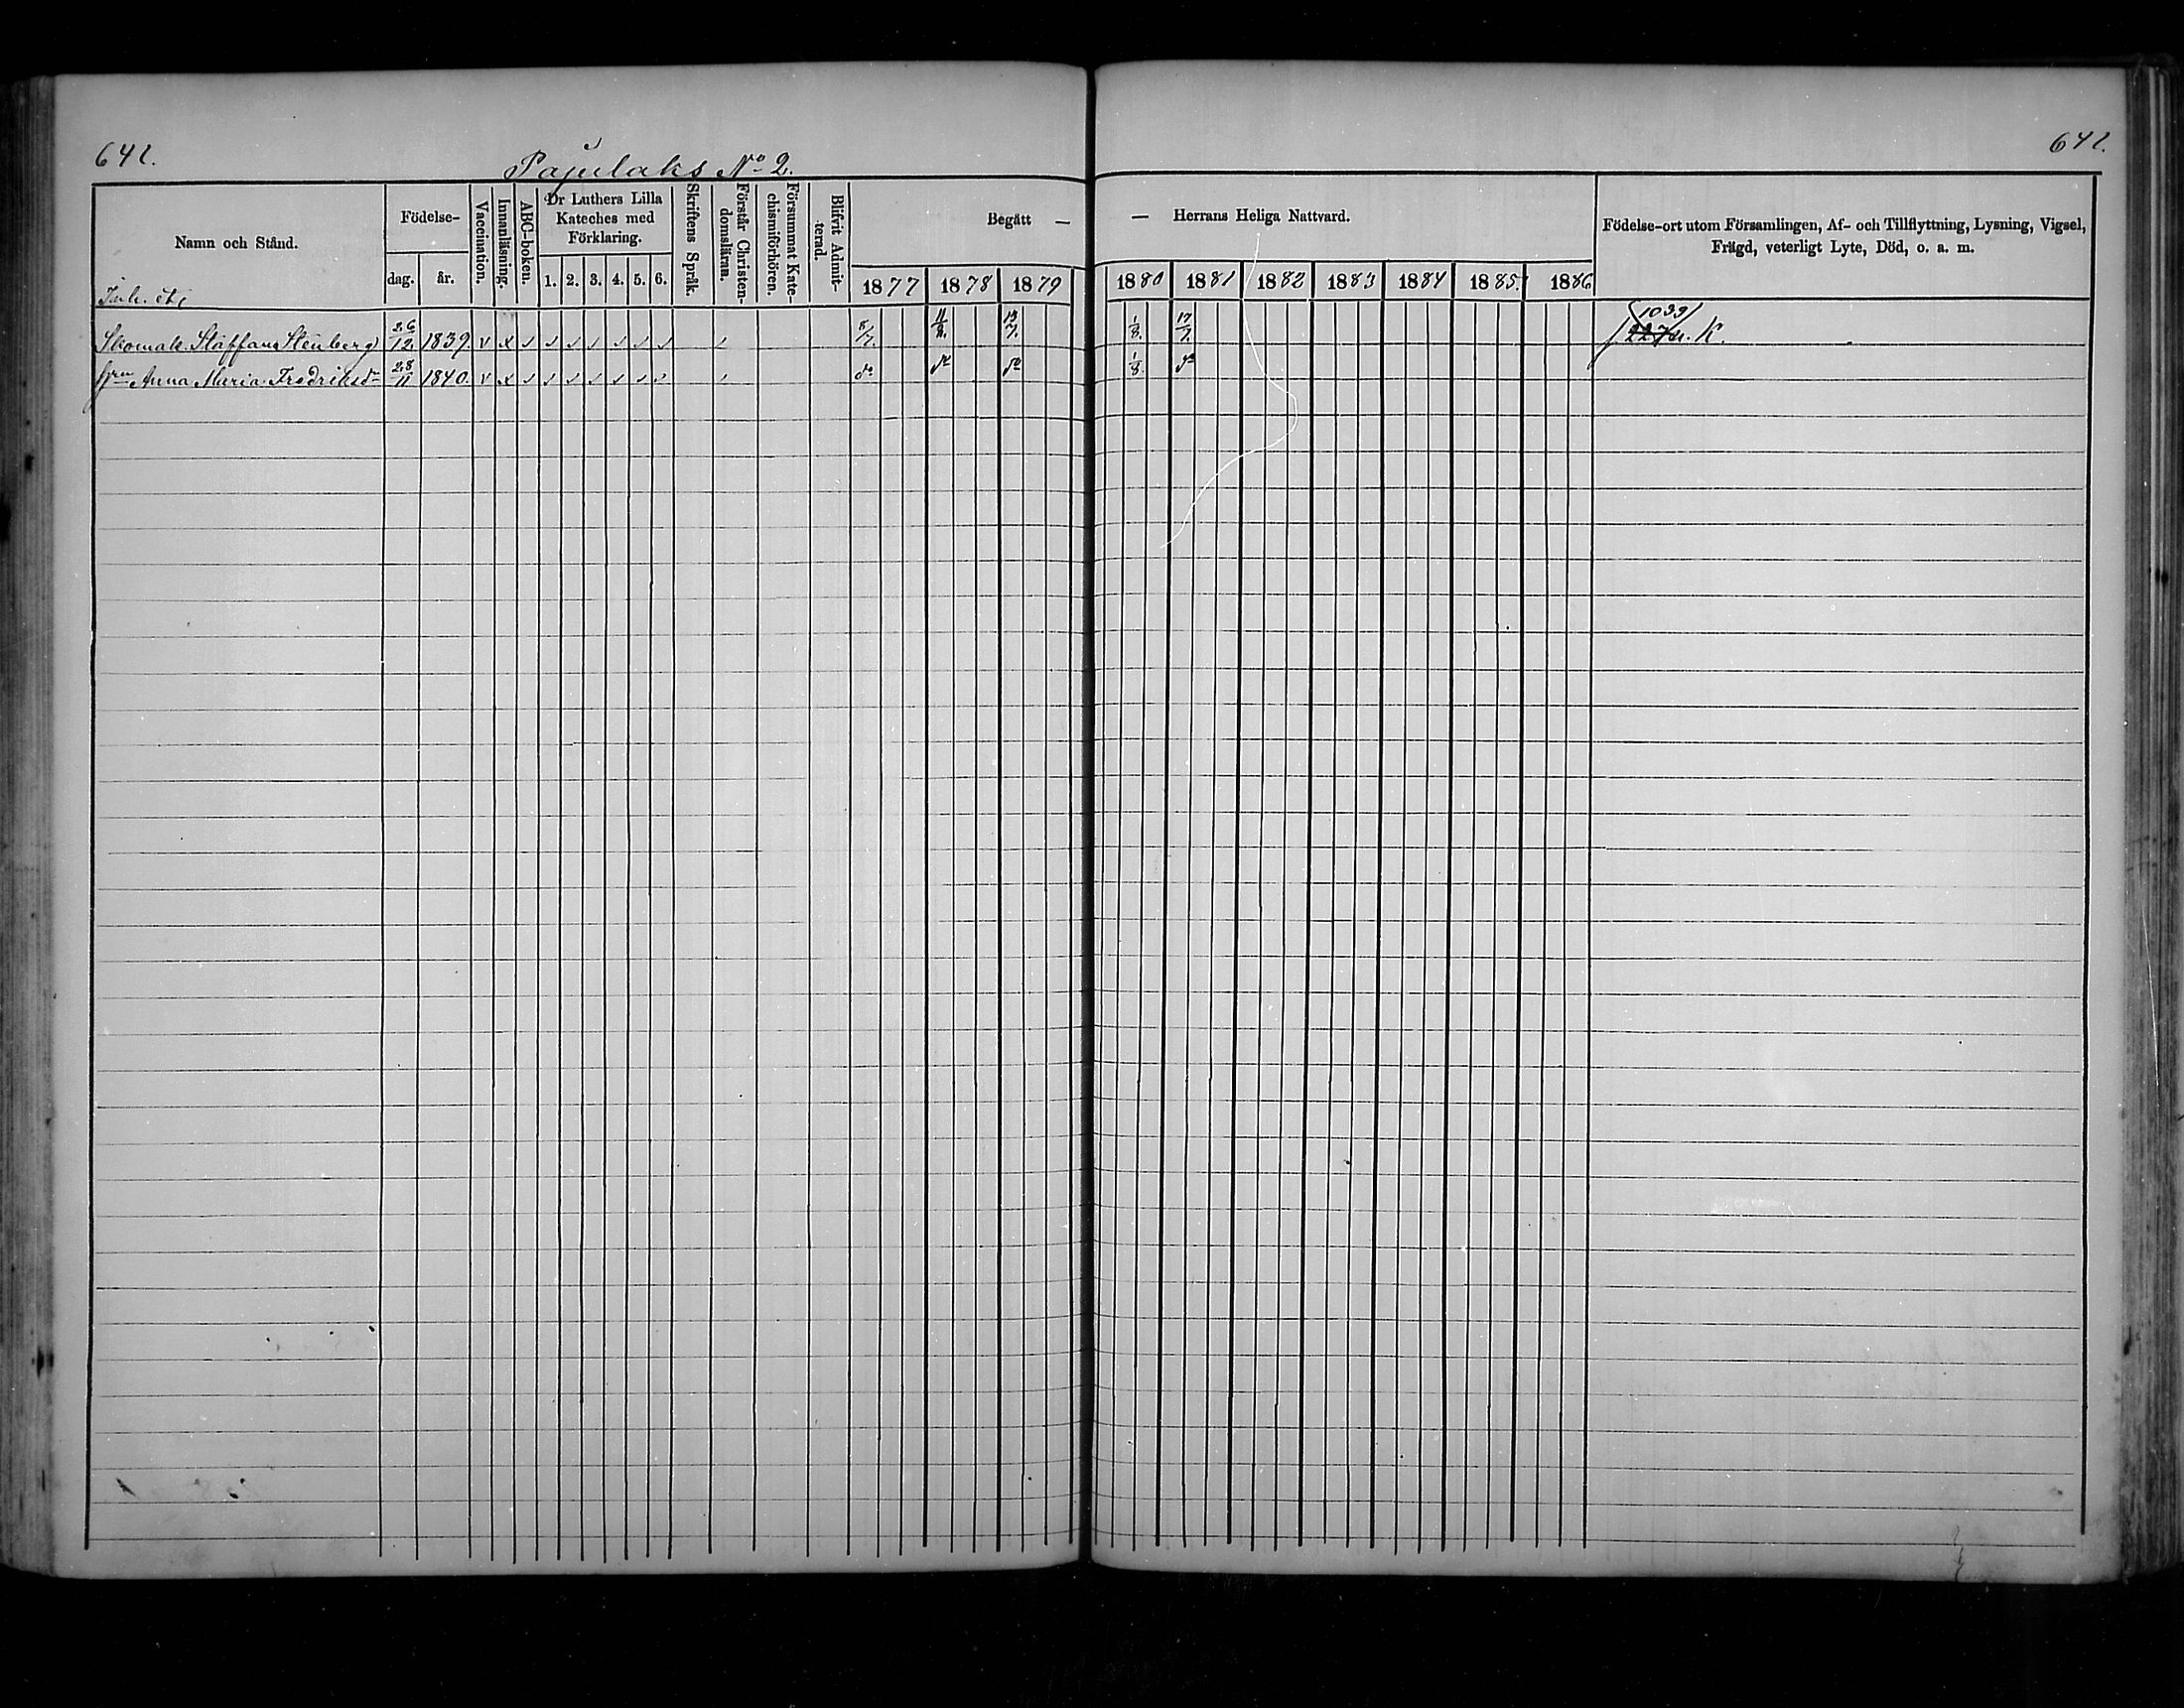 642.
642.
Pajulaks No 2.
Namn och Stånd.
Födelse-
dag.
år.
Vaccination.
Innanläsning.
ABC-boken.
Dr Luthers Lilla
Kateches med
Förklaring.
1. 2. 3. 4. 5. 6.
Skriftens Språk.
Förstår Christen-
domsläran.
Försummat Kate-
chismiförhören.
Blifvit Admit-
terad.
Begått —
— Herrans Heliga Nattvard.
1877 1878 1879 1880 1881 1882 1883 1884 1885. 1886
Födelse-ort utom Församlingen, Af- och Tillflyttning, Lysning, Vigsel,
Frägd, veterligt Lyte, Död, o. a. m.
Inh. etc
Skomak. Staffan Stenberg 26/12. 1839. 8/7. 11/8. 13/7. 1/8. 17/7. 1039 K.
Anna Maria Fredriksdr 28/11 1840. do do do 1/8. do